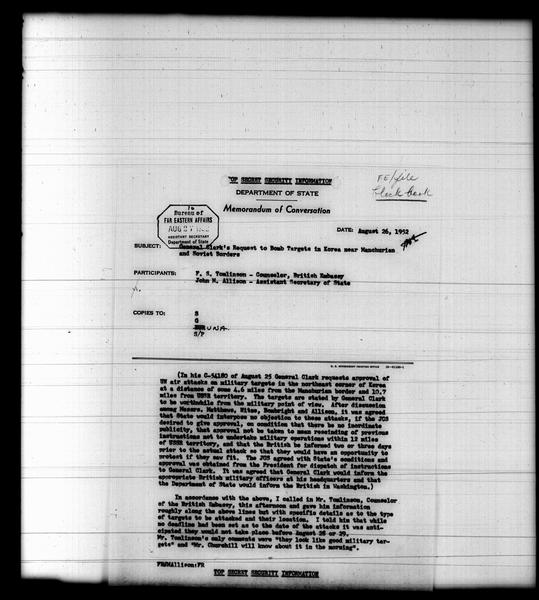 TOP SECRET SECURITY INFORMATION
FE/file
DEPARTMENT OF STATE
Memorandum of Conversation
Bureau of
FAR EASTERN AFFAIRS
ASSISTANT SECRETARY
Department of State
DATE: August 26, 1952
SUBJECT: General Clark's Request to Bomb Targets in Korea near Manchurian
and Soviet Borders
PARTICIPANTS: F. S. Tomlinson - Counselor, British Embassy
John M. Allison - Assistant Secretary of State
COPIES TO: S
G
UNA
S/P
(In his C-54180 of August 25 General Clark requests approval of
UN air attacks on military targets in the northeast corner of Korea
at a distance of some 4.6 miles from the Manchurian border and 10.7
miles from USSR territory. The targets are stated by General Clark
to be worthwhile from the military point of view. After discussion
among Messrs. Matthews, Nitze, Bonbright and Allison, it was agreed
that State would interpose no objection to these attacks, if the JCS
desired to give approval, on condition that there be no inordinate
publicity, that approval not be taken to mean rescinding of previous
instructions not to undertake military operations within 12 miles
of USSR territory, and that the British be informed two or three days
prior to the actual attack so that they would have an opportunity to
protest if they saw fit. The JCS agreed with State's conditions and
approval was obtained from the President for dispatch of instructions
to General Clark. It was agreed that General Clark would inform the
appropriate British military officers at his headquarters and that
the Department of State would inform the British in Washington.)
In accordance with the above, I called in Mr. Tomlinson, Counselor
of the British Embassy, this afternoon and gave him information
roughly along the above lines but with specific details as to the type
of targets to be attacked and their location. I told him that while
no deadline had been set as to the date of the attacks it was anti-
cipated they would not take place before August 28 or 29.
Mr. Tomlinson's only comments were "they look like good military tar-
gets" and "Mr. Churchill will know about it in the morning".
FE:JMAllison:FR
TOP SECRET SECURITY INFORMATION